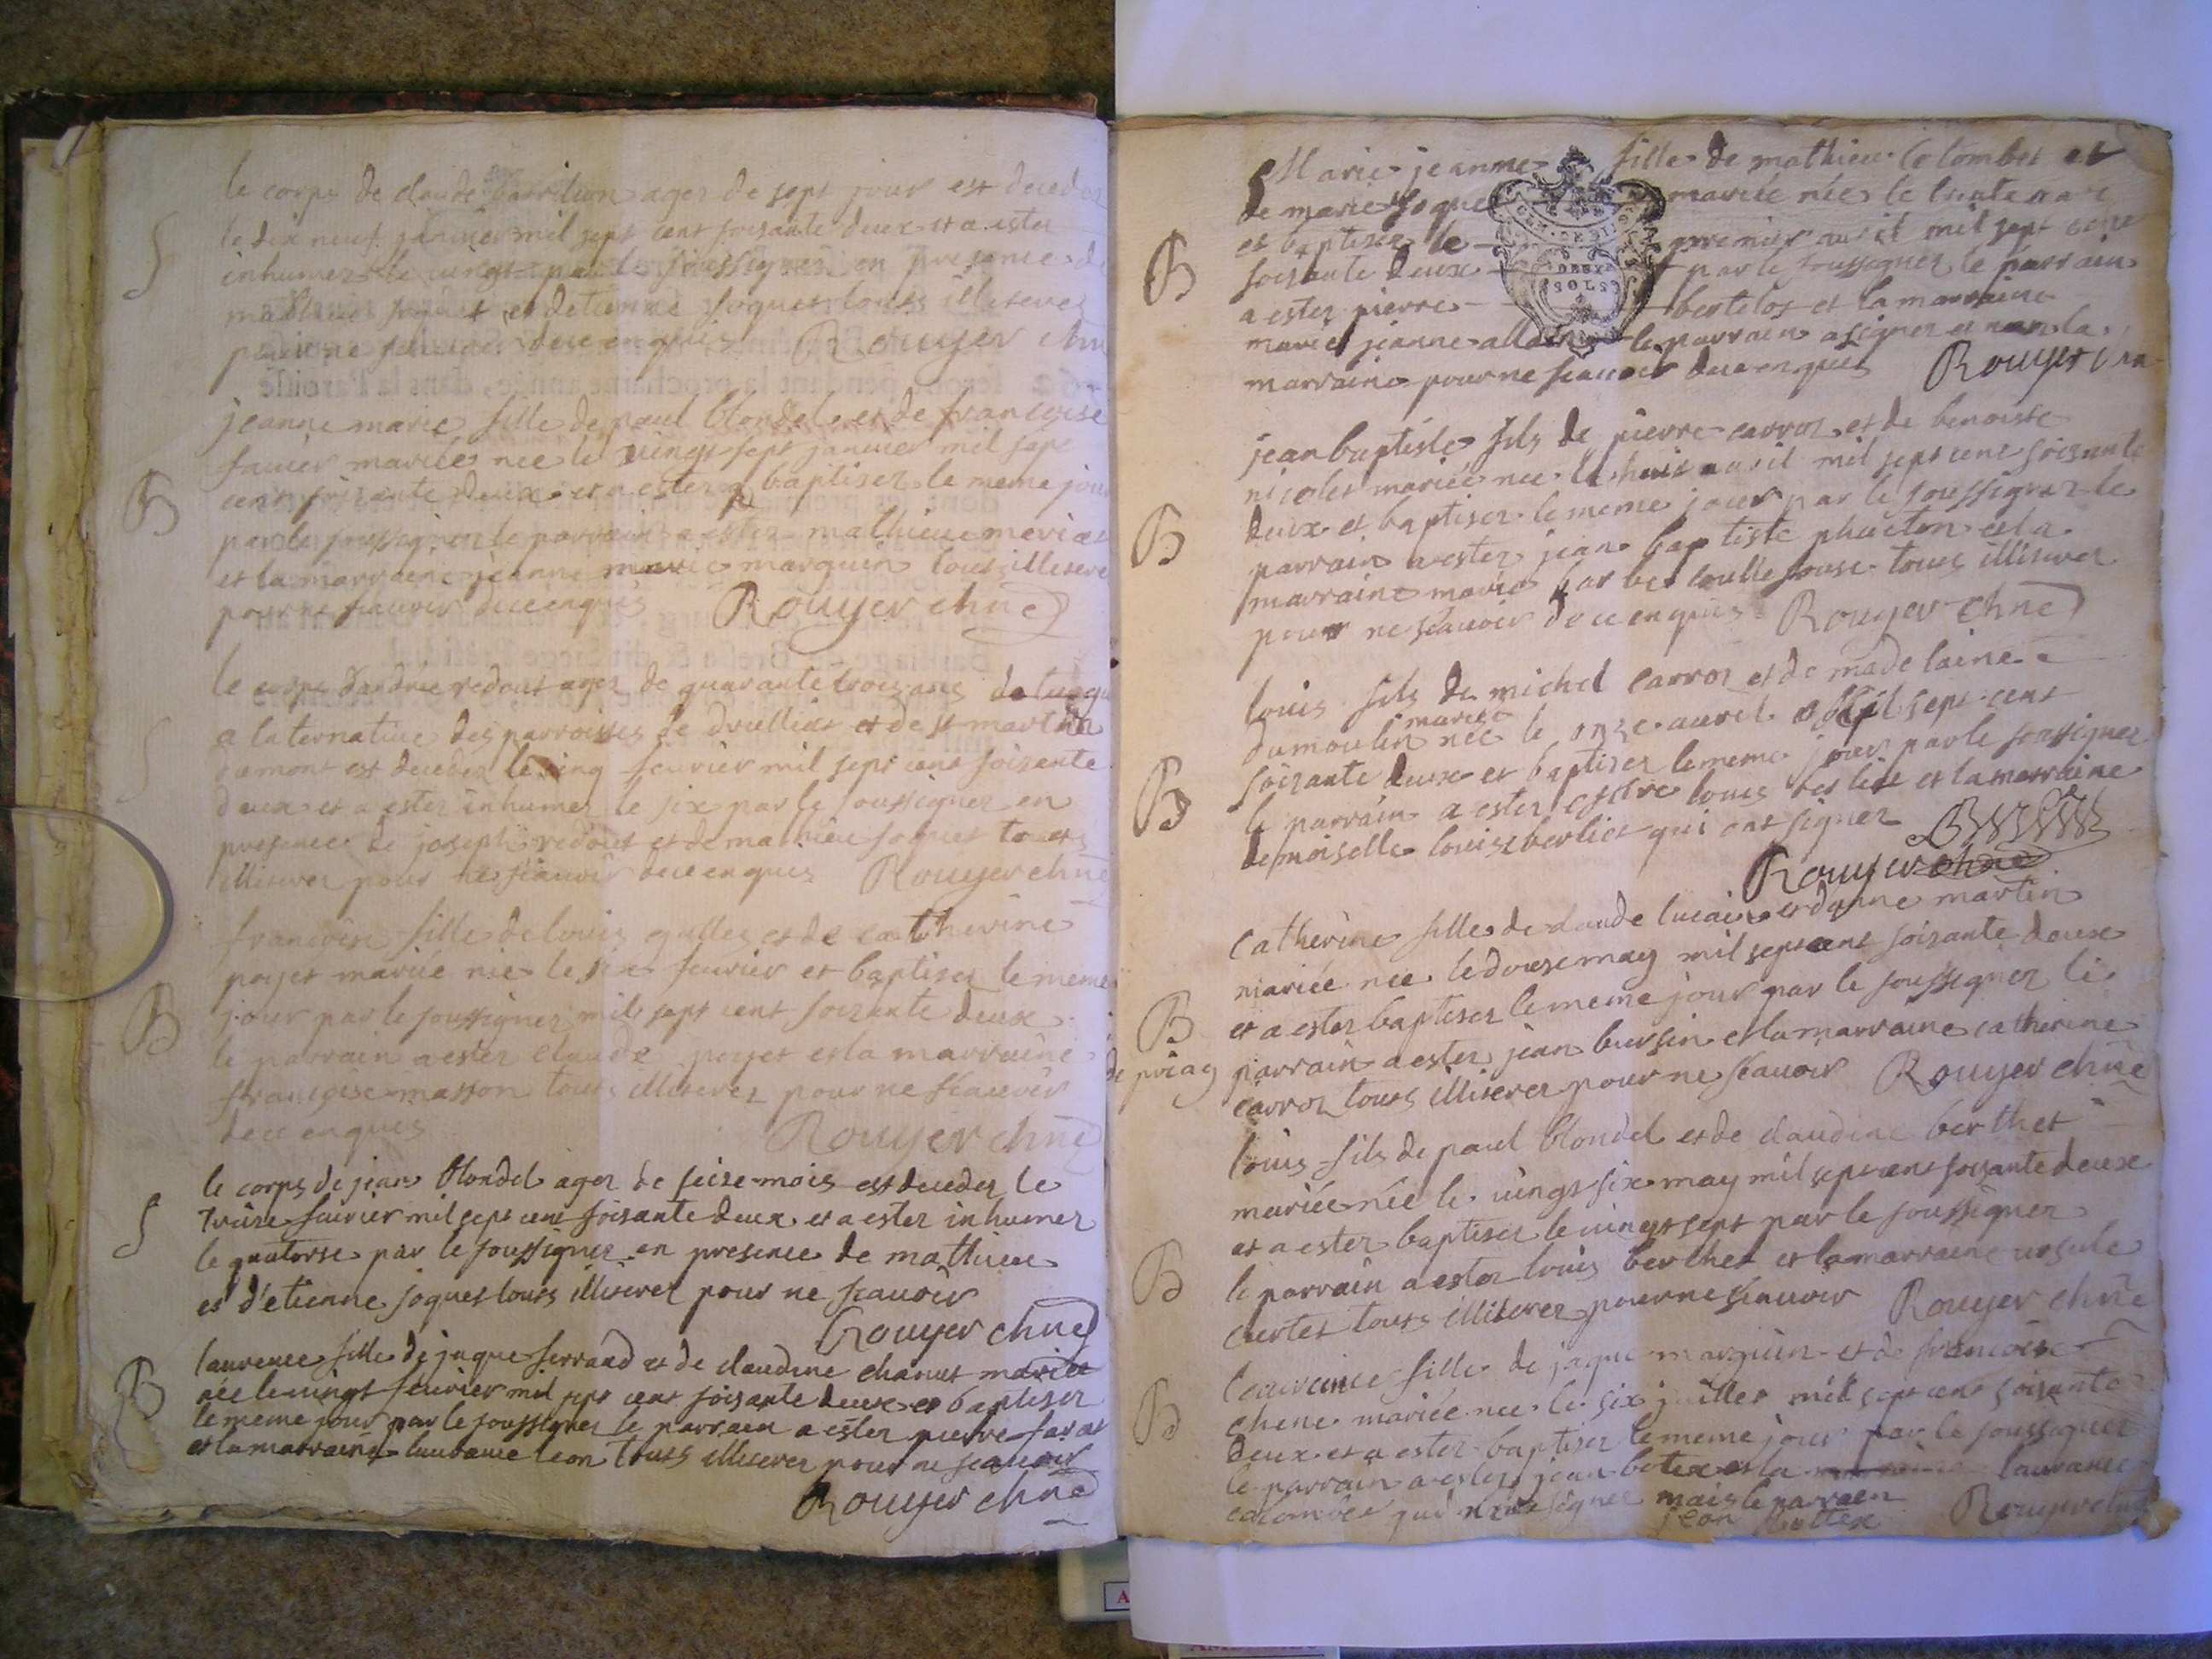 le corps de claude barrilion ager de sept jour est deceder
S
le dix neuf janvier mil sept cent soisante deux et a ester
inhumer le vingt par le soussigner en presance de
mathieu joquet et detienne joquet touts illiserer
pour ne scauoir dece enquis Rouyer chne
jeanne marie fille de paul blondel et de francoise
fauier mariée nee le vingt sept janvier mil sept
B
cent soisante deux et a ester baptiser le meme jour
par le soussigner le parrain a ester mathieu meriat
et la marraine jeanne marie marguin tous illiserer
pour ne scauoir dece enquis Rouyer chne
le corps dandrée redout ager de quarante trois ans
S
a laternatiue des parroisses de druilliat et de st martin
dumont est deceder le cinq feurier mil sept cent soisante
deux et a ester inhumer le six par le soussigner en
presence de joseph redout et de mathieu joquet touts
illiserer pour ne scauoir dece enquis Rouyer chne
francoise fille de louis gallet et de catherine
poyet mariée nie le six feurier et baptiser le meme
B
jour par le soussigner mil sept cent soisante deux
le parrain a ester claude poyet et la marraine
francoise masson touts illiserer pour ne scauoir
dece enquis
Rouyer chne
le corps de jean blondel ager de seise mois est deceder le
S
treise feurier mil sept cent soisante deux et a ester inhumer
le quatorse par le soussigner en presence de mathieu
et d'etienne joquet touts illiserer pour ne scauoir
Rouyer chne
laurence fille de jaque ferrand et de claudine chanut mariée
B
née le vingt feurier mil sept cent soisante deux et baptiser
le meme jour par le soussigner le parrain a ester pierre
et la marraine laurance leon touts illiserer pour ne scauoir
Rouyer chne
Marie jeanne fille de mathieu colombet et
de marie joquet mariée née le trente mars
B
et baptiser le premier auril mil sept cent
soisante deux par le soussigner le parrain
GEN DE DIJON
DEUX
SOLS
a ester pierre bertelot et la marraine
marie jeanne le parrain a signer et non la
marraine pour ne scauoir dece enquis Rouyer chne
jean baptiste fils de pierre carroz et de benoiste
nicolet mariée nee le huit auril mil sept cent soisante
B
deux et baptiser le meme jour par le soussigner le
parrain a ester jean baptiste phaeton et la
marraine marie touts illiserer
pour ne scauoir dece enquis Rouyer chne
louis fils de michel carroz et de madelaine
mariée
dumoulin née le onze auril mil sept cent
B
soisante deux et baptiser le meme jour par le soussigner
le parrain a ester louis berliet et la marraine
demoiselle louise berliet qui ont signer
Rouyer chne
catherine fille de claude lucain et danne martin
mariée nee le douse may mil sept cent soisante deux
B
et a ester baptiser le meme jour par le soussigner le
parrain a ester jean bursin et la marraine catherine
carroz touts illiserer pour ne scauoir Rouyer chne
louis fils de paul blondel et de claudine berthet
mariée née le vingt six may mil sept cent soisante deux
et a ester baptiser le vingt sept par le soussigner
B
le parrain a ester louis berthet et la marraine ursule
curtet touts illiserer pour ne scauoir Rouyer chne
laurence fille de jaque marguin et de francoise
B
chene mariée nee le six juillet mil sept cent soisante
deux et a ester baptiser le meme jour par le soussigner
le parrain a ester jean botex et la laurance
colombet qui signer mais le parrain
jean Bottex Rouyer chne